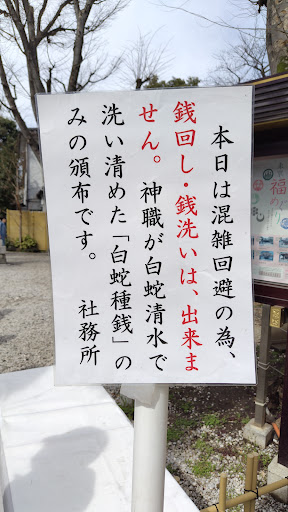 本日は混雑回避の為、
銭回し・銭洗いは、出来ま
せん。神職が白蛇清水で
洗い清めた「白蛇種銭」の
みの頒布です。　社務所
福